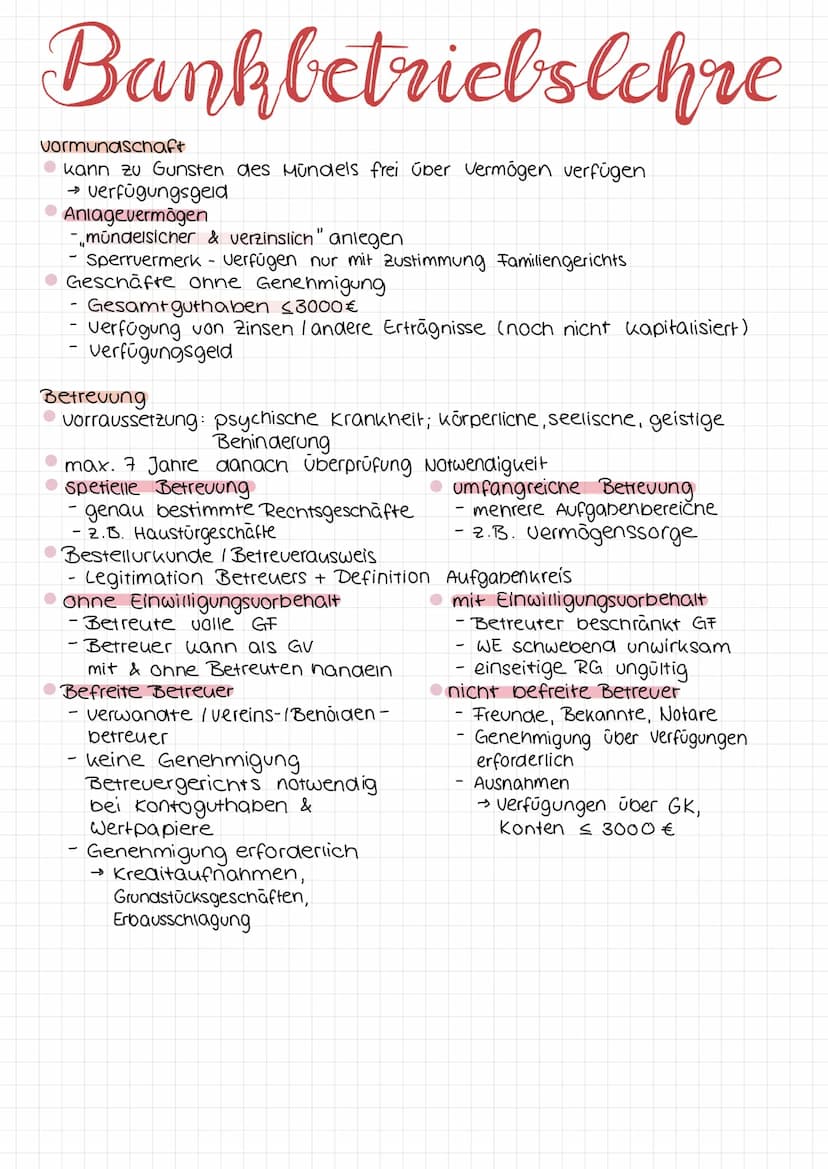 Bankbetriebslehre
Vormundschaft
kann zu Gunsten des Mündels frei über Vermögen verfügen
→ Verfügungsgeld
Anlagevermögen
- „mündelsicher & verzinslich" anlegen
- Sperrvermerk - Verfügen nur mit Zustimmung Familiengerichts
Geschäfte ohne Genehmigung
- Gesamtguthaben ≤3000€
- Verfügung von Zinsen / andere Erträgnisse (noch nicht kapitalisiert)
- Verfügungsgeld
Betreuung
Vorraussetzung: psychische Krankheit; körperliche, seelische, geistige
Behinderung
max. 7 Jahre danach Überprüfung Notwendigkeit
spetielle Betreuung
- genau bestimmte Rechtsgeschäfte
- z.B. Haustürgeschäfte
umfangreiche Betreuung
- mehrere Aufgabenbereiche
- z.B. Vermögenssorge
Bestellurkunde / Betreuerausweis
- Legitimation Betreuers + Definition Aufgabenkreis
ohne Einwilligungsvorbehalt
- Betreute volle GF
- Betreuer kann als GV
mit & ohne Betreuten handeln
mit Einwilligungsvorbehalt
- Betreuter beschränkt GF
- WE schwebend unwirksam
- einseitige RG ungültig
Befreite Betreuer
- Verwandte / Vereins-/Behörden-
betreuer
- keine Genehmigung
Betreuergerichts notwendig
bei Kontoguthaben &
Wertpapiere
- Genehmigung erforderlich
→ Kreditaufnahmen,
Grundstücksgeschäften,
Erbausschlagung
nicht befreite Betreuer
- Freunde, Bekannte, Notare
- Genehmigung über Verfügungen
erforderlich
- Ausnahmen
→ Verfügungen über GK,
Konten ≤ 3000 €